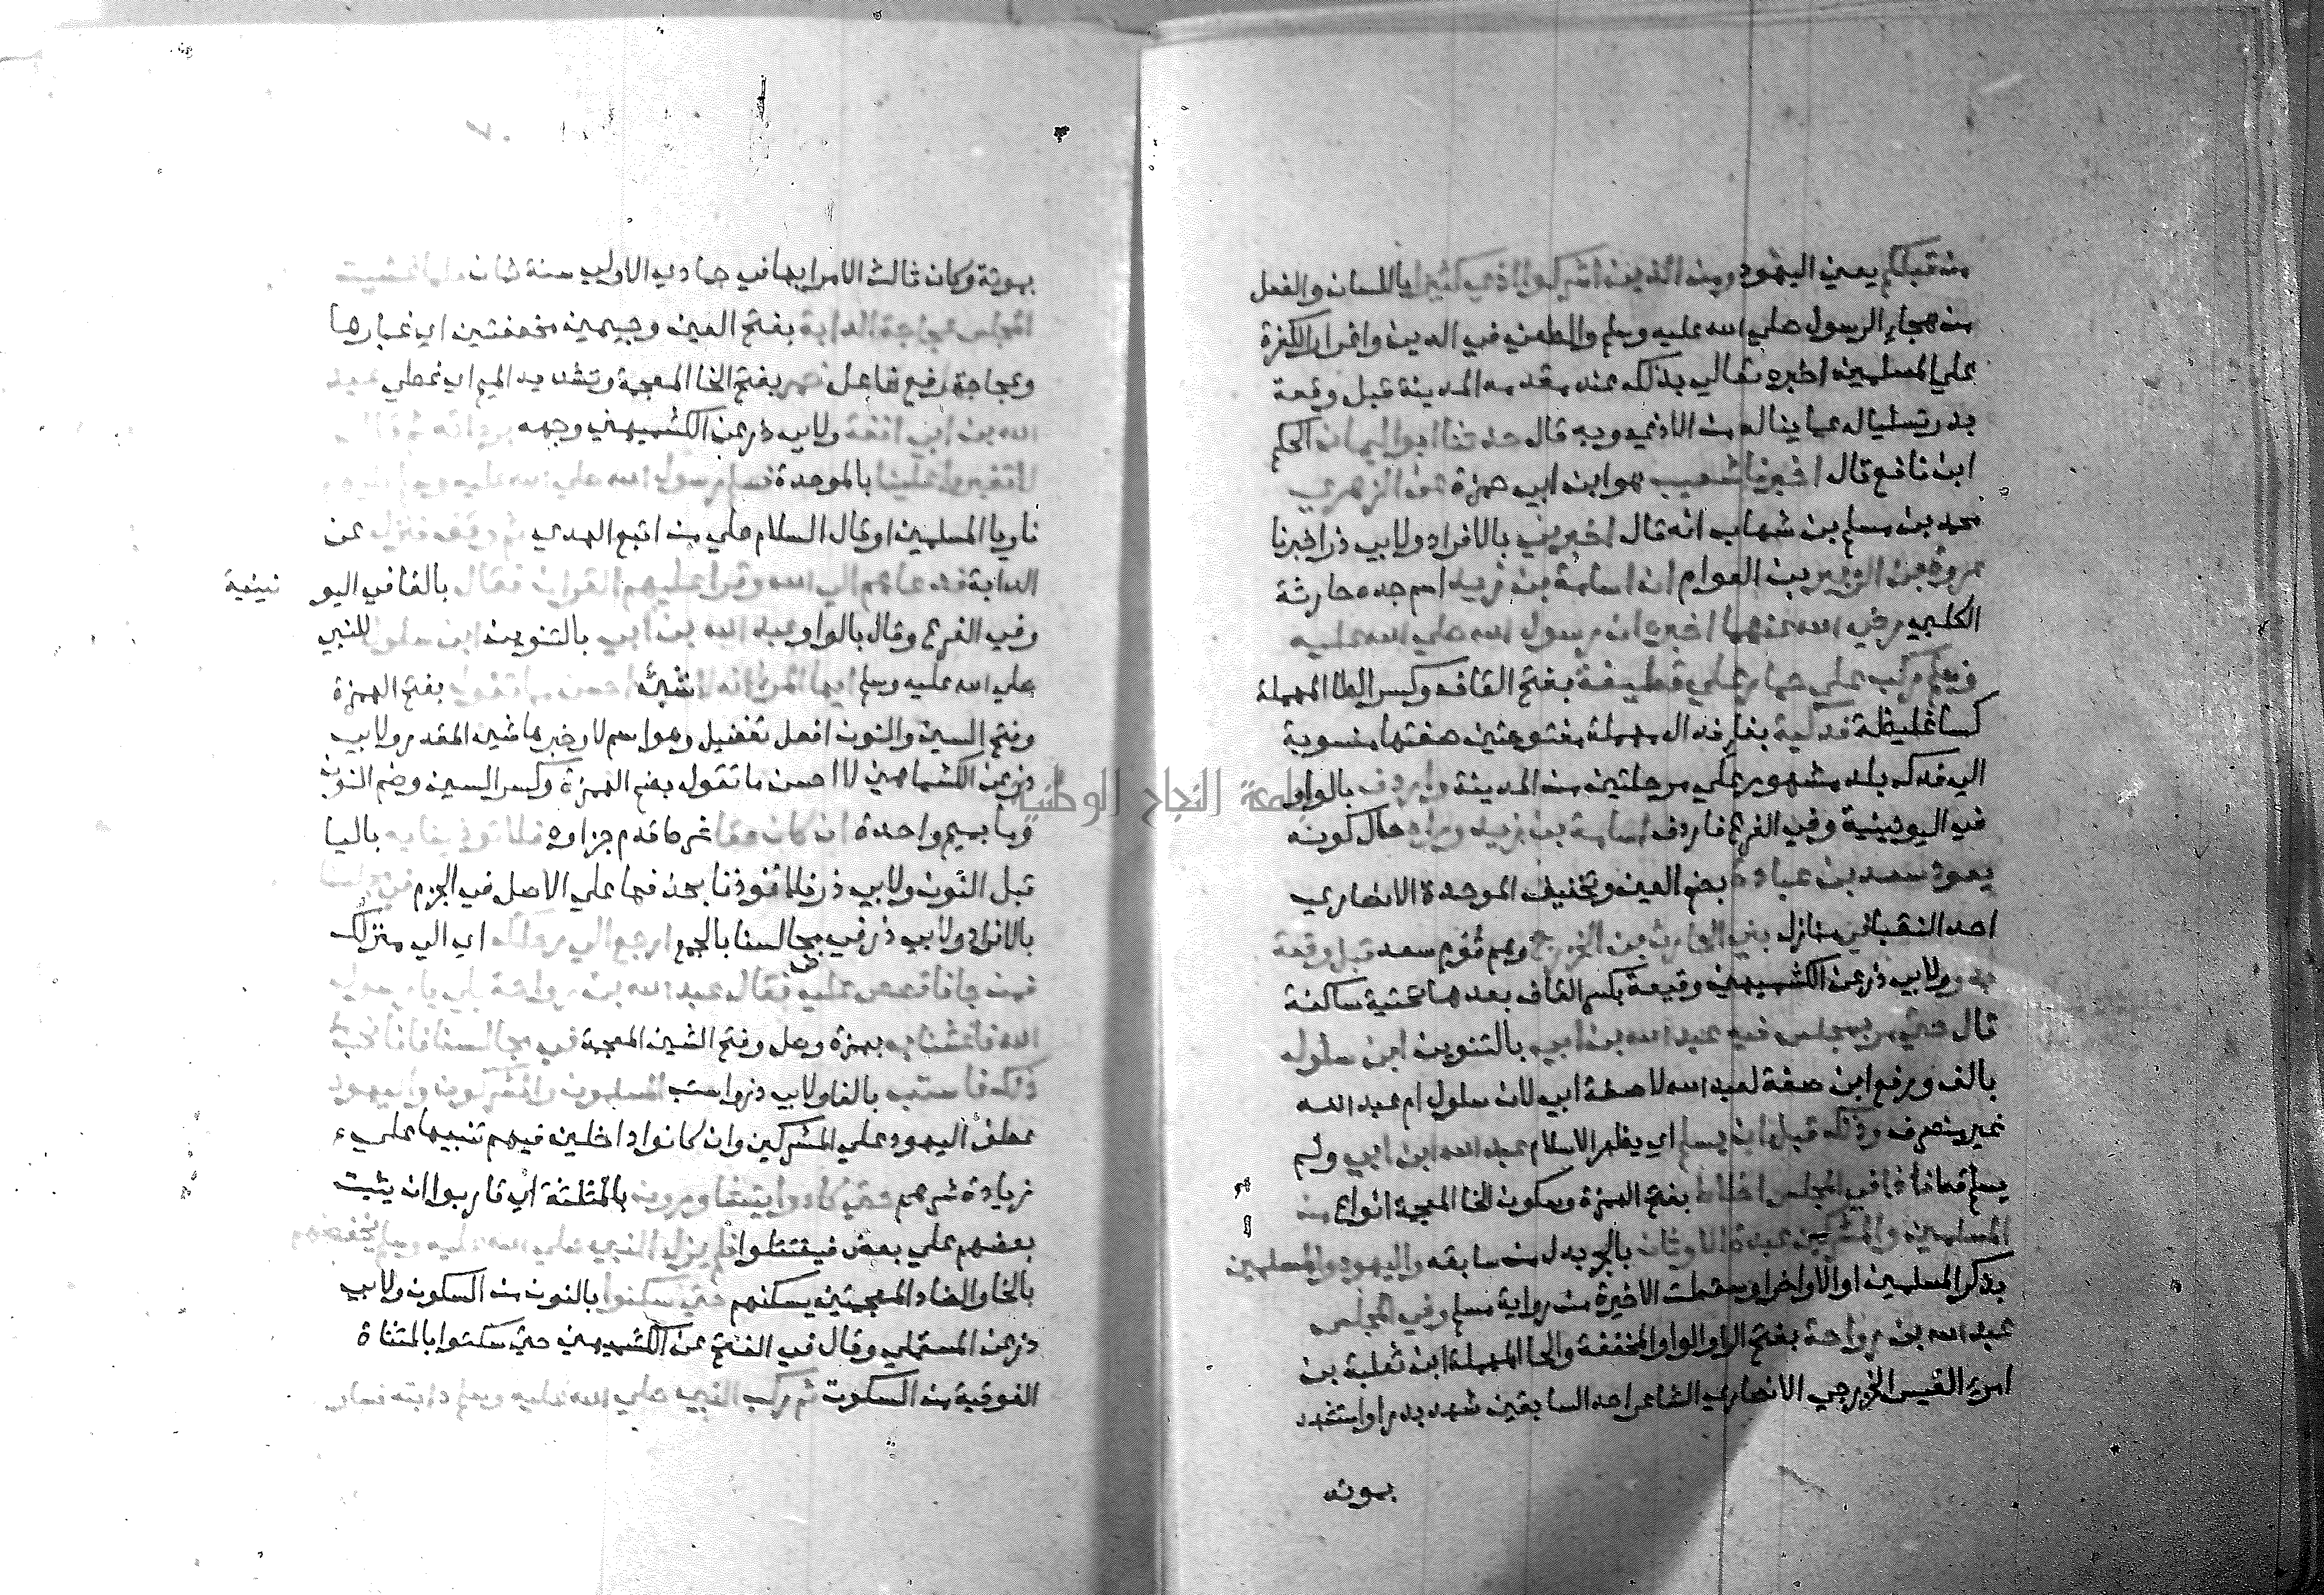 من قبلكم يعني اليهود ومن الذين اشركوا اذي كثيرا باللسان والفعل
من هجاء الرسول صلي الله عليه وسلم والطعن في الدين واغراء الكفرة
علي المسلمين اخبره تعالي بذلك عند مقدمه المدينة قبل وقعة
بدر تسلياله عما يناله من الاذي وبه قال حدثنا ابو اليمان الحكم
ابن نافع قال اخبرنا شعيب هو ابن ابي حمزة عن الزهري
محمد بن مسلم بن شهاب انه قال اخبرني بالافراد ولابي ذر اخبرنا
عروة بن الزبير بن العوام ان اسامة بن زيد اسم جده حارثة
الكلبي رضي الله عنهما اخبره ان رسول الله صلي الله عليه
وسلم ركب علي حمار علي قطيفة بفتح القاف وكسر الطا المهملة
كسا غليظة فدكية بفا فدال مهملة مفتوحتين صفتها منسوبة
الي فدك بلد مشهور علي مرحلتين من المدينة واردف بالواو
في اليونينية وفي الفرع فاردف اسامة بن زيد وراه حال كونه
يعود سعد بن عبادة بضم العين وتخفيف الموحدة الانصاري
احد النقبا في منازل بني الحارث بن الخزرج وهم قوم سعد قبل وقعة
بدر ولابي ذر عن الكشميهني وقيعة بكسر القاف بعدها تحتية ساكنة
قال حتي مر بمجلس فيه عبد الله بن ابي بالتنوين ابن سلول
بالف ورفع ابن صفة لعبد الله لا صفة ابي لان سلول ام عبد الله
غير منصرف وذلك قبل ان يسلم اي يظهر الاسلام عبد الله ابن ابي ولم
يسلم قط فاذا في المجلس اخلاط بفتح الهمزة وسكون الخا المعجمة انواع من
المسلمين والمشركين عبدة الاوثان بالجر بدل من سابقه واليهود والمسلمين
بذكر المسلمين اولا واخرا وسقطت الاخيرة من رواية مسلم وفي المجلس
عبد الله بن رواحة بفتح الرا والواو المخففة والحا المهملة ابن ثعلبة بن
امرئ القيس الخزرجي الانصاري الشاعر احد السابقين شهد بدرا واستشهد
بموته
بموتة وكان ثالث الامرا بها في جمادي الاولي سنة ثمان فلما غشيت
المجلس عجاجة الدابة بفتح العين وجيمين مخففتين اي غبارها
وعجاجة رفع فاعل خمر بفتح الخا المعجمة وتشديد الميم اي غطي عبد
الله بن ابي انفه ولابي ذر عن الكشميهني وجهه بردائه ثم قال
لا تغبروا علينا بالموحدة فسلم رسول الله صلي الله عليه وسلم عليهم
ناويا المسلمين او قال السلام علي من اتبع الهدي ثم وقف فنزل عن
الدابة فدعاهم الي الله وقرا عليهم القران فقال بالفا في اليو نينية
وفي الفرع وقال بالواو عبد الله بن ابي بالتنوين ابن سلول للنبي
صلي الله عليه وسلم ايها المرء انه لا شيئ احسن مما تقول بفتح الهمزة
وفتح السين والنون افعل تفضيل وهو اسم لا وخبرها شيئ المقدم ولابي
ذر عن الكشماهيني لا احسن ما تقول بضم الهمزة وكسر السين وضم النون
وما بميم واحدة ان كان حقا شرط قدم جزاوه فلا توذينا به باليا
قبل النون ولابي ذر فلا تؤذنا بحذفها علي الاصل في الجزم في مجلسنا
بالافراد ولابي ذر في مجالسنا بالجمع ارجع الي رحلك اي الي منزلك
فمن جاءك فاقصص عليه فقال عبد الله بن رواحة بلي يا رسول
الله فاغشنا به بهمزة وصل وفتح الشين المعجمة في مجالسنا فانا نحب
ذلك فاستب بالفا ولابي ذر واستب المسلمون والمشركون واليهود
عطف اليهود علي المشركين وان كانوا داخلين فيهم تنبيها علي
زيادة شرهم حتي كادوا يتثاورون بالمثلثة اي قاربوا ان يثبت
بعضهم علي بعض فيقتتلوا فلم يزل النبي صلي الله عليه وسلم يخفضهم
بالخا والضاد المعجمتين يسكنهم حتي سكنوا بالنون من السكون ولابي
ذر عن المستملي وقال في الفتح عن الكشميهني حتي سكتوا بالمثناة
الفوقية من السكوت ثم ركب النبي صلي الله عليه وسلم دابته فسار